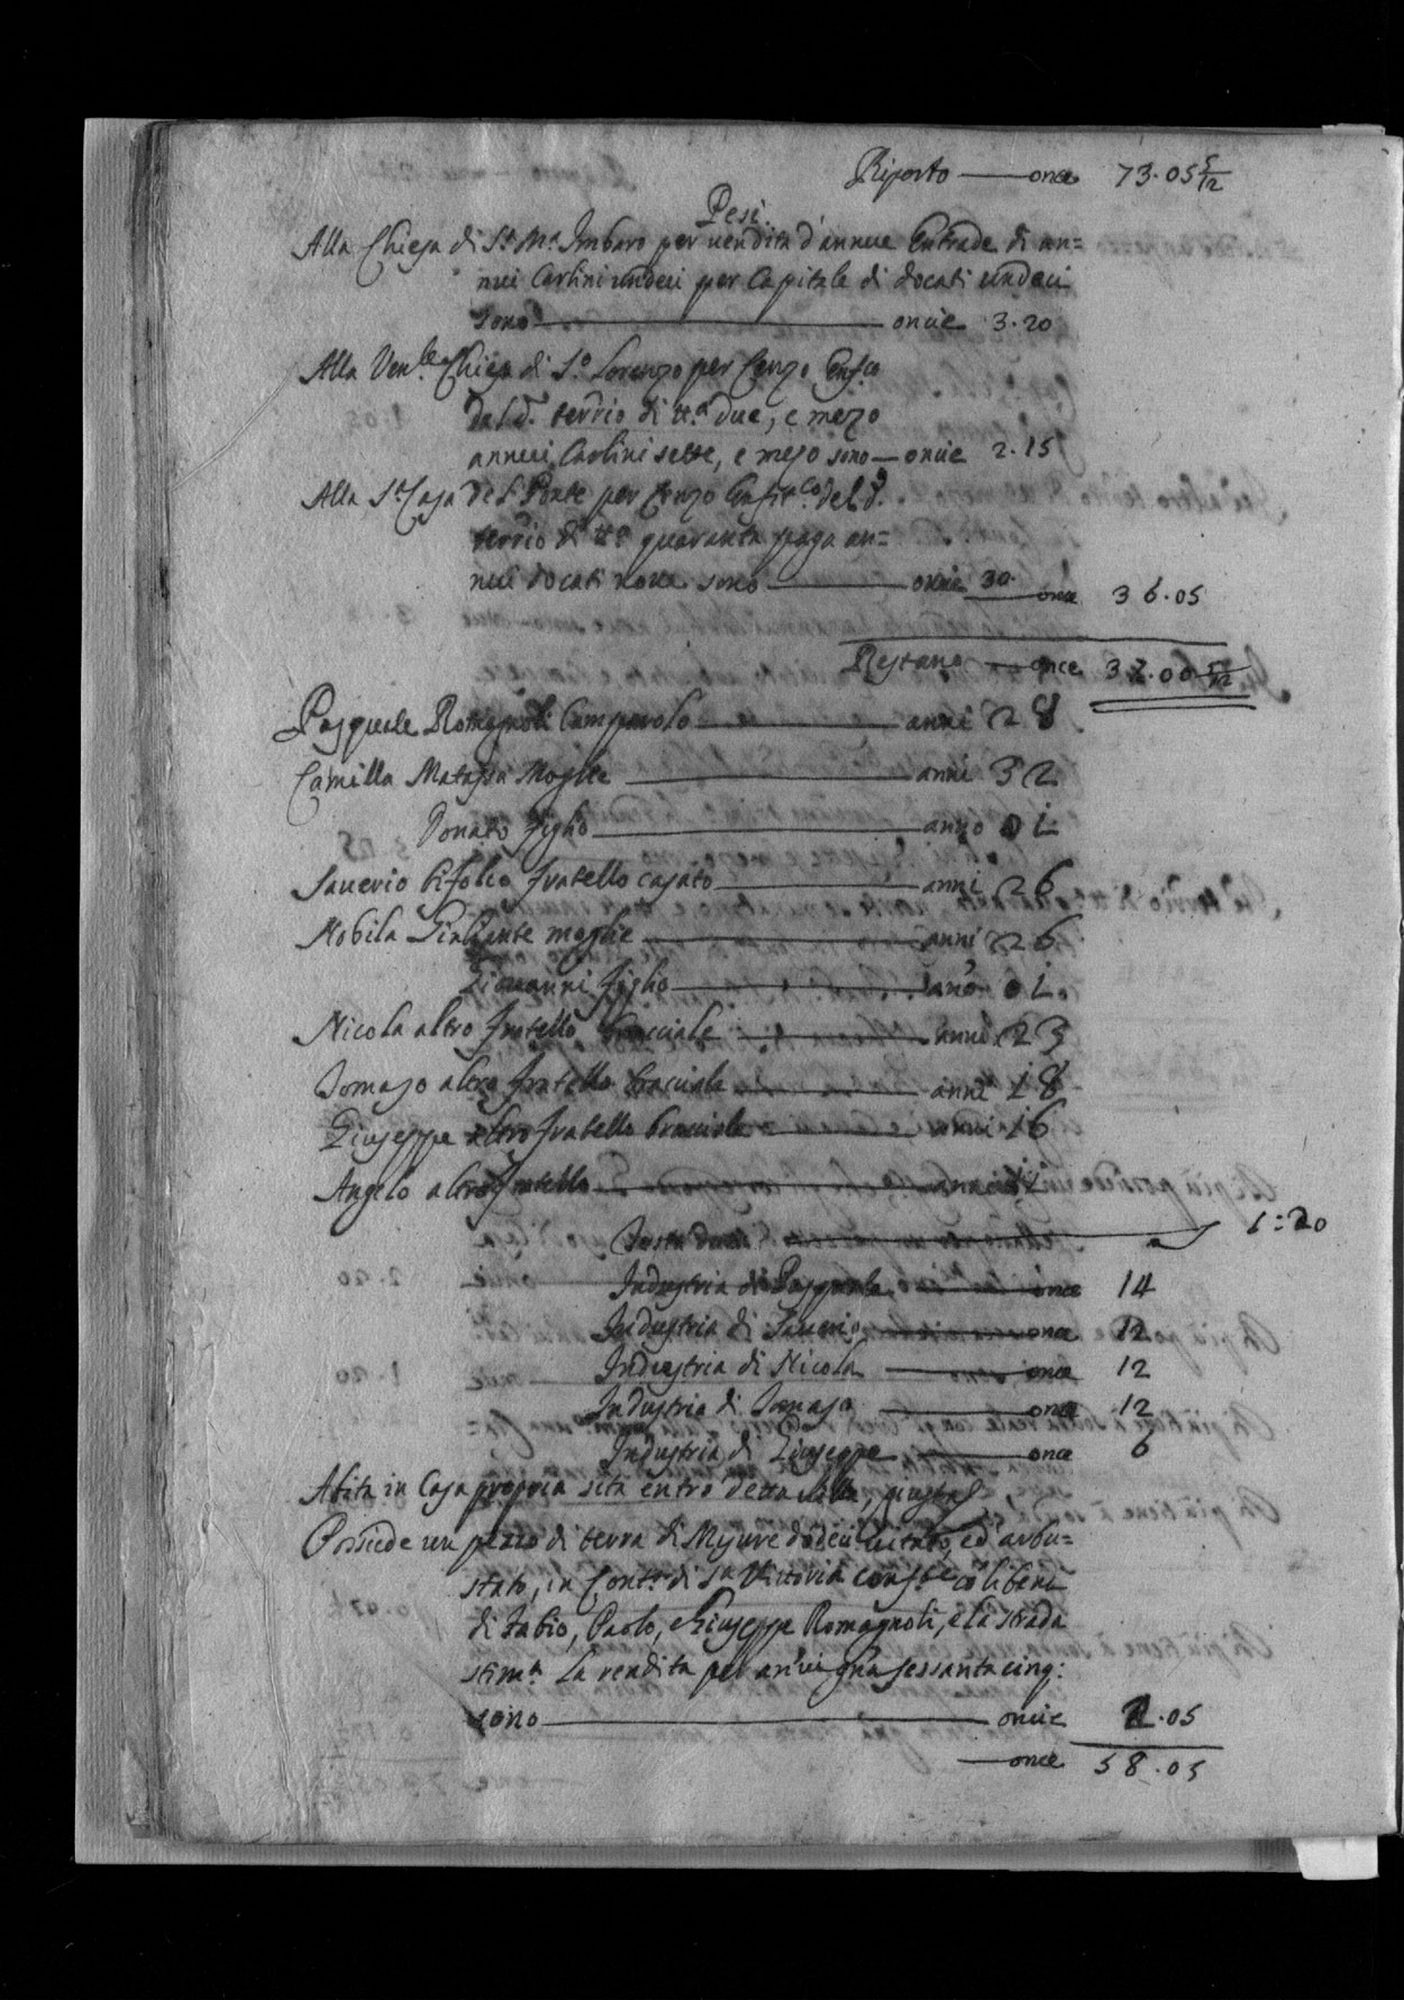 Riporto — once 73.05 5/12
Pesi.
Alla Chiesa di S.ª M.ª Imbaro per vendita d'annue Entrade di an=
nui Carlini undeci per Capitale di docati undeci
sono — oncie 3.20
Alla Ven.le Chiesa di S.º Lorenzo per Cenzo Enf.co
del d.º terrio di tt.ª due, e mezo
annui Carlini sette, e mezo sono — oncie 2.15
Alla S.ª Casa del Ponte per Cenzo Enfit.co del d.º
terrio di tt.ª quaranta paga an=
nui docati nove sono — oncie 30. once 36.05
Restano — once 37.00 5/12
Pasquale Romagnoli Camparolo — anni 28
Camilla Matassa Moglie — anni 32
Donato figlio — anno 01
Saverio Bifolco fratello casato — anni 26
Nobila Giallante moglie — anni 26
Giovanni figlio — anno 01.
Nicola altro fratello bracciale — anni 23
Tomaso altro fratello bracciale — anni 18
Giuseppe altro fratello bracciale — anni 16
Angelo altro fratello — anni
Testa docati 1:20
Industria di Pasquale — once 14
Industria di Saverio — once 12
Industria di Nicola — once 12
Industria di Tomaso — once 12
Industria di Giuseppe — once 6
Abita in Casa propria sita entro detta Villa, giusta
Possiede un pezzo di terra di Mysure dodeci vitato, ed arbu=
stato, in Cont.ª di S.ª Vittoria conf.te cò li beni
di Fabio, Paolo, e Giuseppe Romagnoli, e la strada
stim.ª la rendita per an̄ui gña sessantacinq:
sono — oncie 2.05
— once 58.05